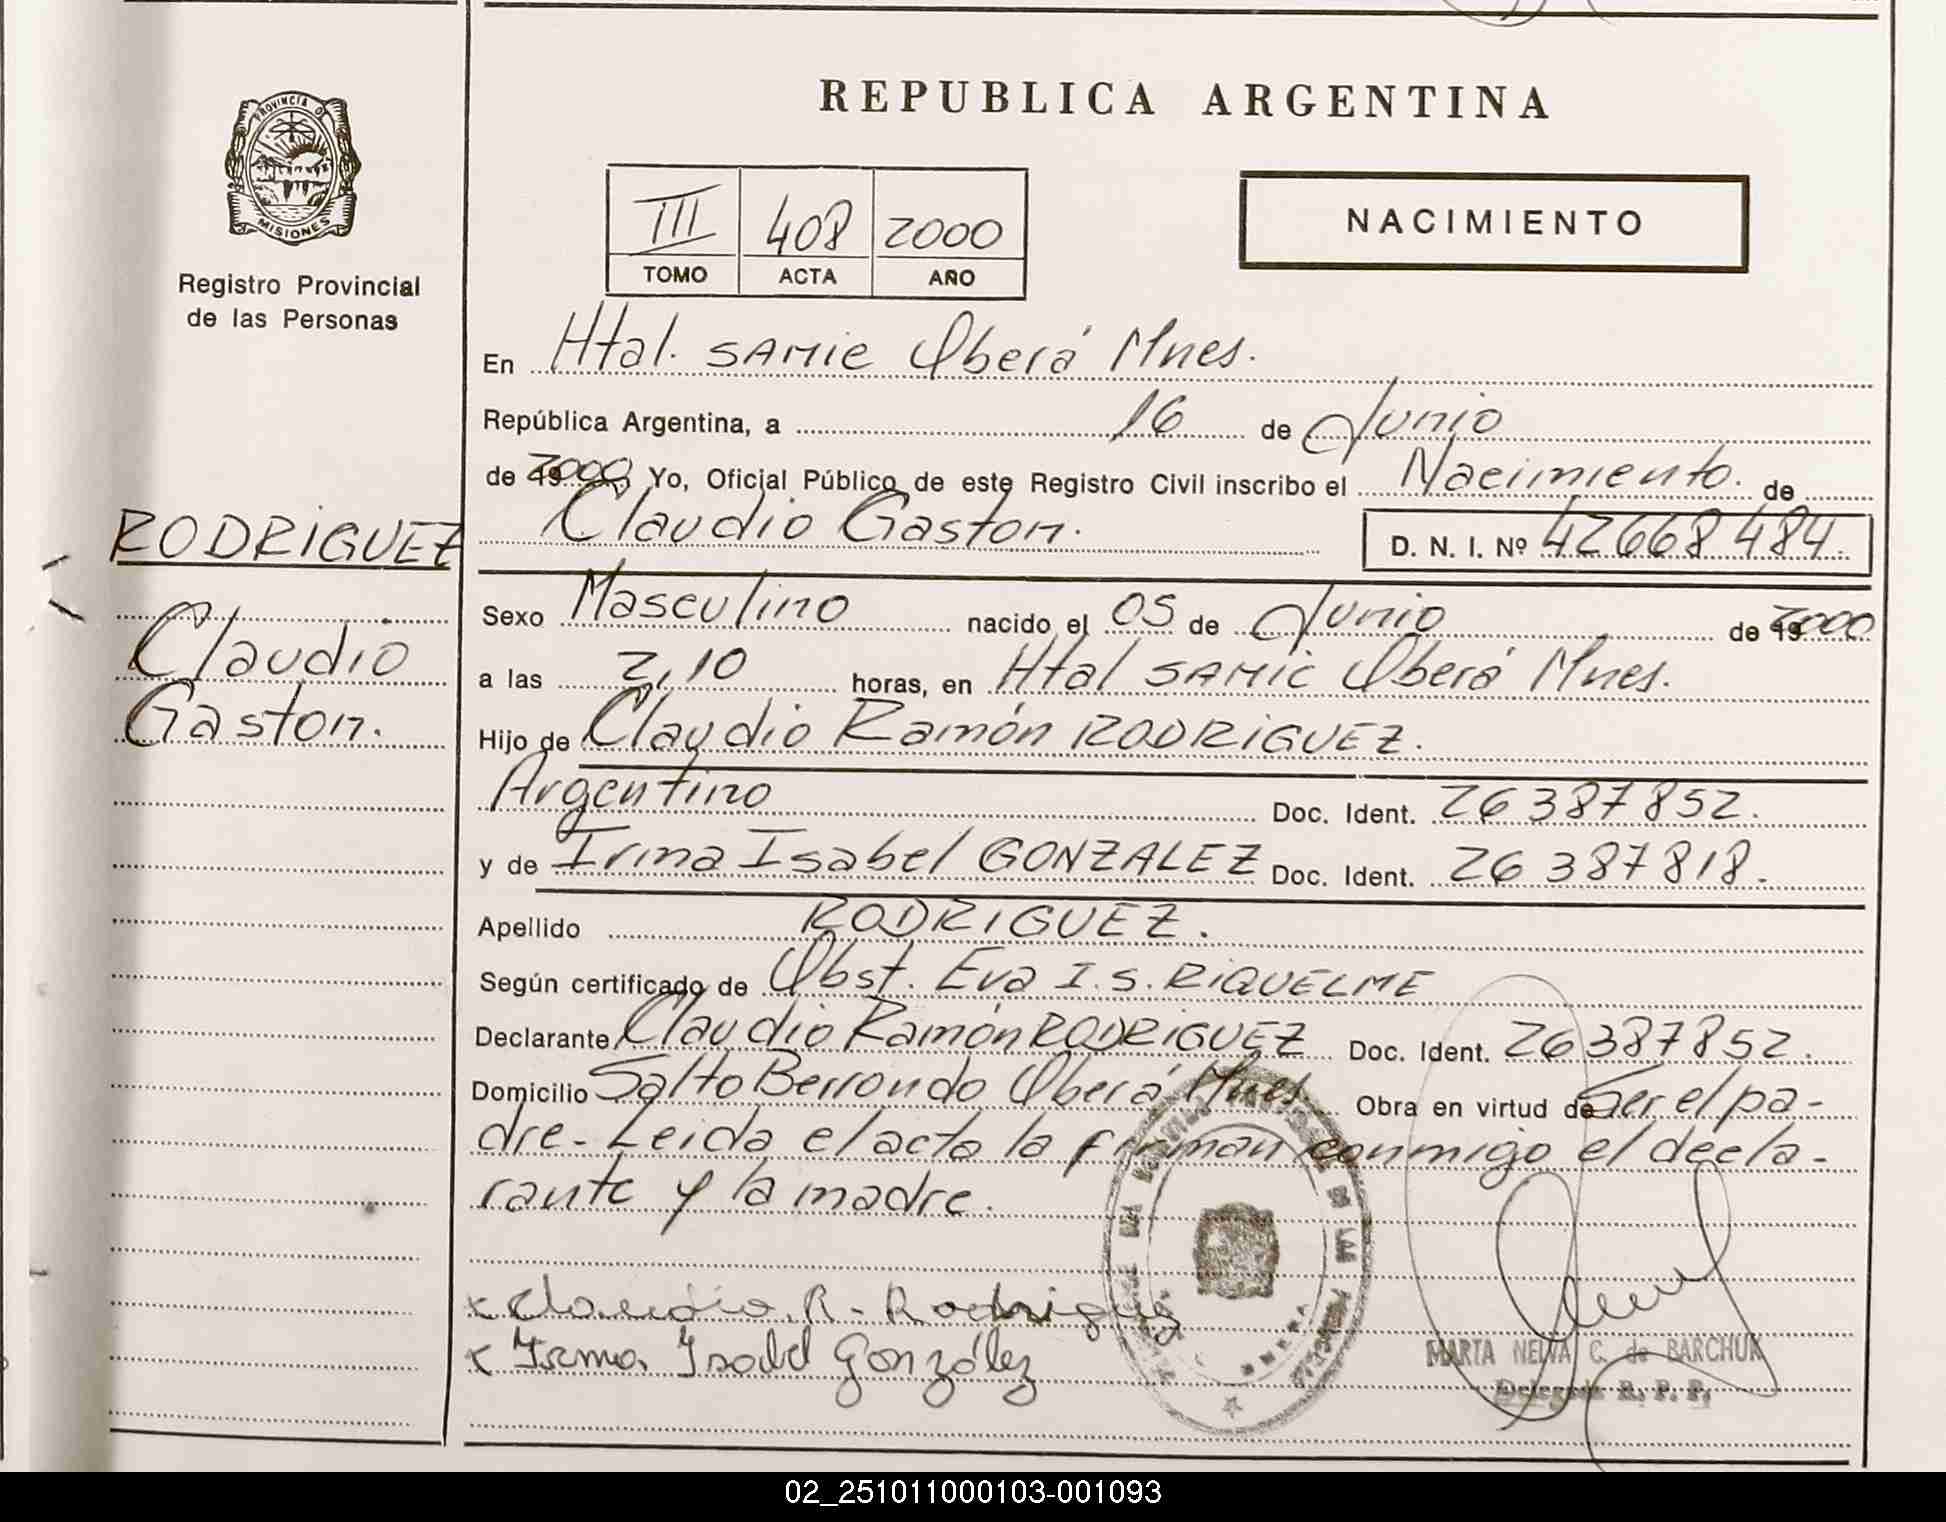 REPUBLICA ARGENTINA
PROVINCIA DE
MISIONES
Registro Provincial
de las Personas
III 408 2000
TOMO ACTA AÑO
NACIMIENTO
En Htal. SAMIC Oberá Mnes.
República Argentina, a 16 de Junio
de 2000, Yo, Oficial Público de este Registro Civil inscribo el Nacimiento. de
Claudio Gaston. D. N. I. Nº 42668484.
RODRIGUEZ
Claudio
Gaston.
Sexo Masculino nacido el 05 de Junio de 2000
a las 2,10 horas, en Htal SAMIC Oberá Mnes.
Hijo de Claudio Ramón RODRIGUEZ.
Argentino Doc. Ident. 26387852.
y de Irma Isabel GONZALEZ Doc. Ident. 26387818.
Apellido RODRIGUEZ.
Según certificado de Obst. Eva I. S. RIQUELME
Declarante Claudio Ramón RODRIGUEZ Doc. Ident. 26387852.
Domicilio Salto Berrondo Oberá Mnes. Obra en virtud de Ser el pa-
dre- Leida el acta la firman conmigo el decla-
rante y la madre.
x Claudio. R. Rodriguez
x Irma Isabel González
MARTA NELVA C. de BARCHUK
Delegada R. P. P.
02_251011000103-001093